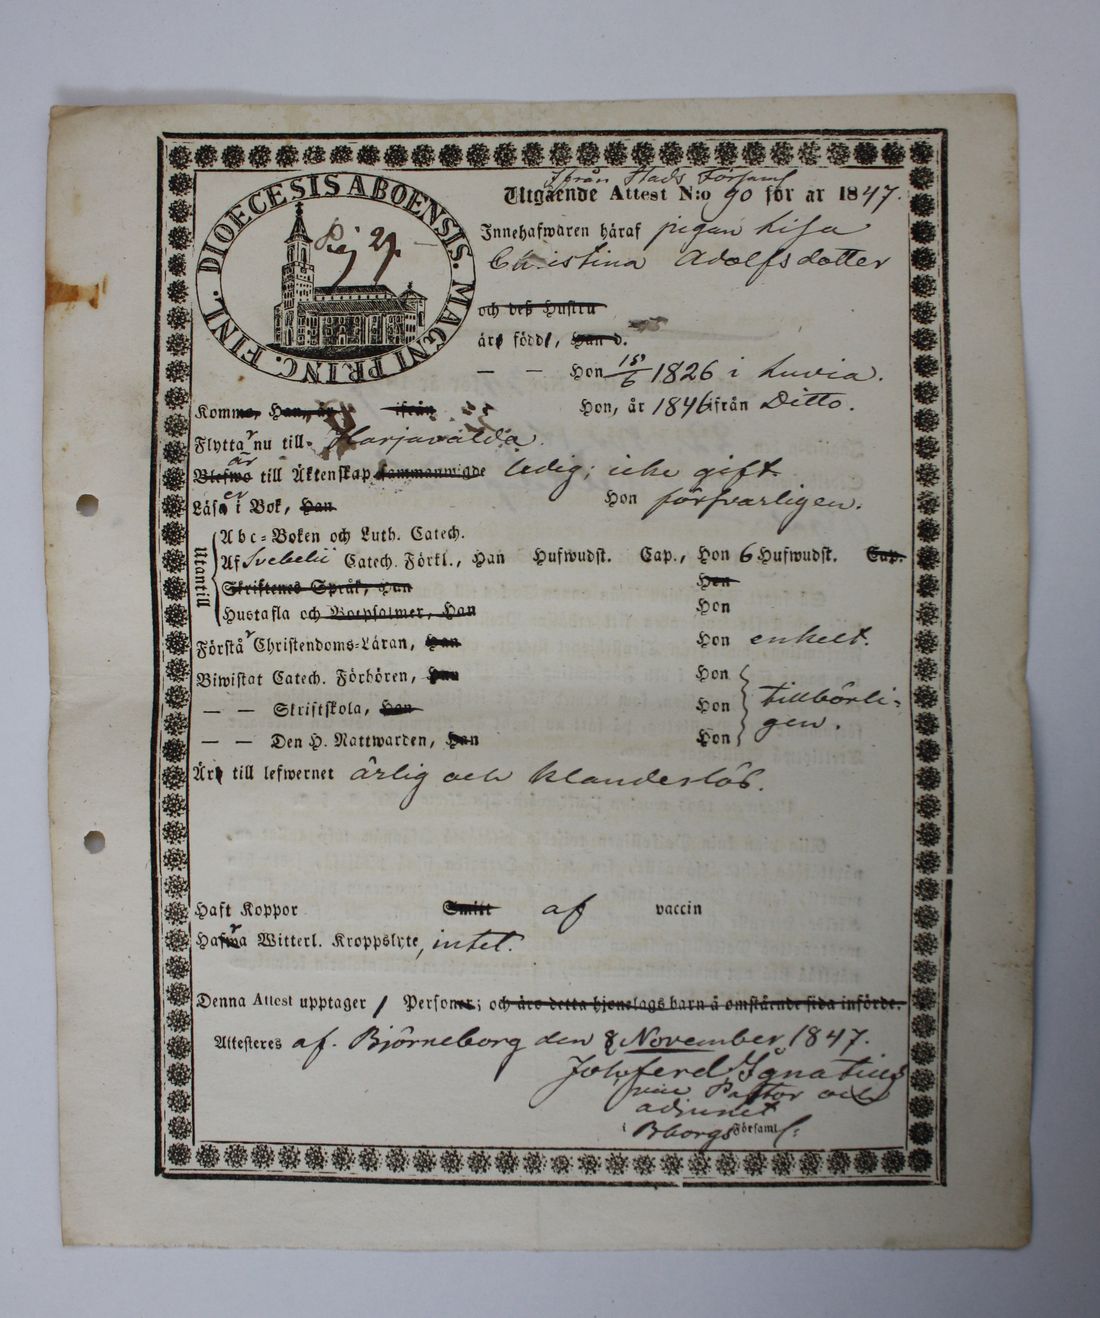 DIOECESIS ABOENSIS. MAGNI PRINC. FINL.
ifrån Stads Församl
Utgående Attest N:o 90 för år 1847.
Innehafwaren häraf pigan Lisa
Christina Adolfsdotter
och deß Hustru
äro födde, Han d.
— — Hon 15/6 1826 i Luvia.
Komme, Han, år ifrån Hon, år 1846 ifrån Ditto.
Flyttar nu till Harjavalda
är
Blefwo till Äktenskap sammanwigde ledig; icke gift
Läser i Bok, Han Hon försvarligen.
Utantill
Abc-Boken och Luth. Catech.
Af Svebelii Catech. Förkl., Han Hufwudst. Cap., Hon 6 Hufwudst. Cap.
Skriftenes Språk, Han Hon
Hustafla och Botpsalmer, Han Hon
Förstår Christendoms-Läran, Han Hon enkelt.
Biwistat Catech. Förhören, Han Hon
— — Skriftskola, Han Hon tillbörli-
gen.
— — Den H. Nattwarden, Han Hon
Är till lefwernet ärlig och klanderlös.
Haft Koppor Smitt af vaccin
Hafwa Witterl. Kroppslyte, intet.
Denna Attest upptager 1 Personer; och äro detta hjonelags barn å omstående sida införde.
Attesteres af. Björneborg den 8 November 1847.
Joh ferd Ignatius
vice Pastor och
adjunct
i Bborgs Församl.